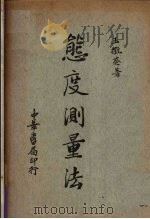 王徵葵著
態度測量法
中華書局印行